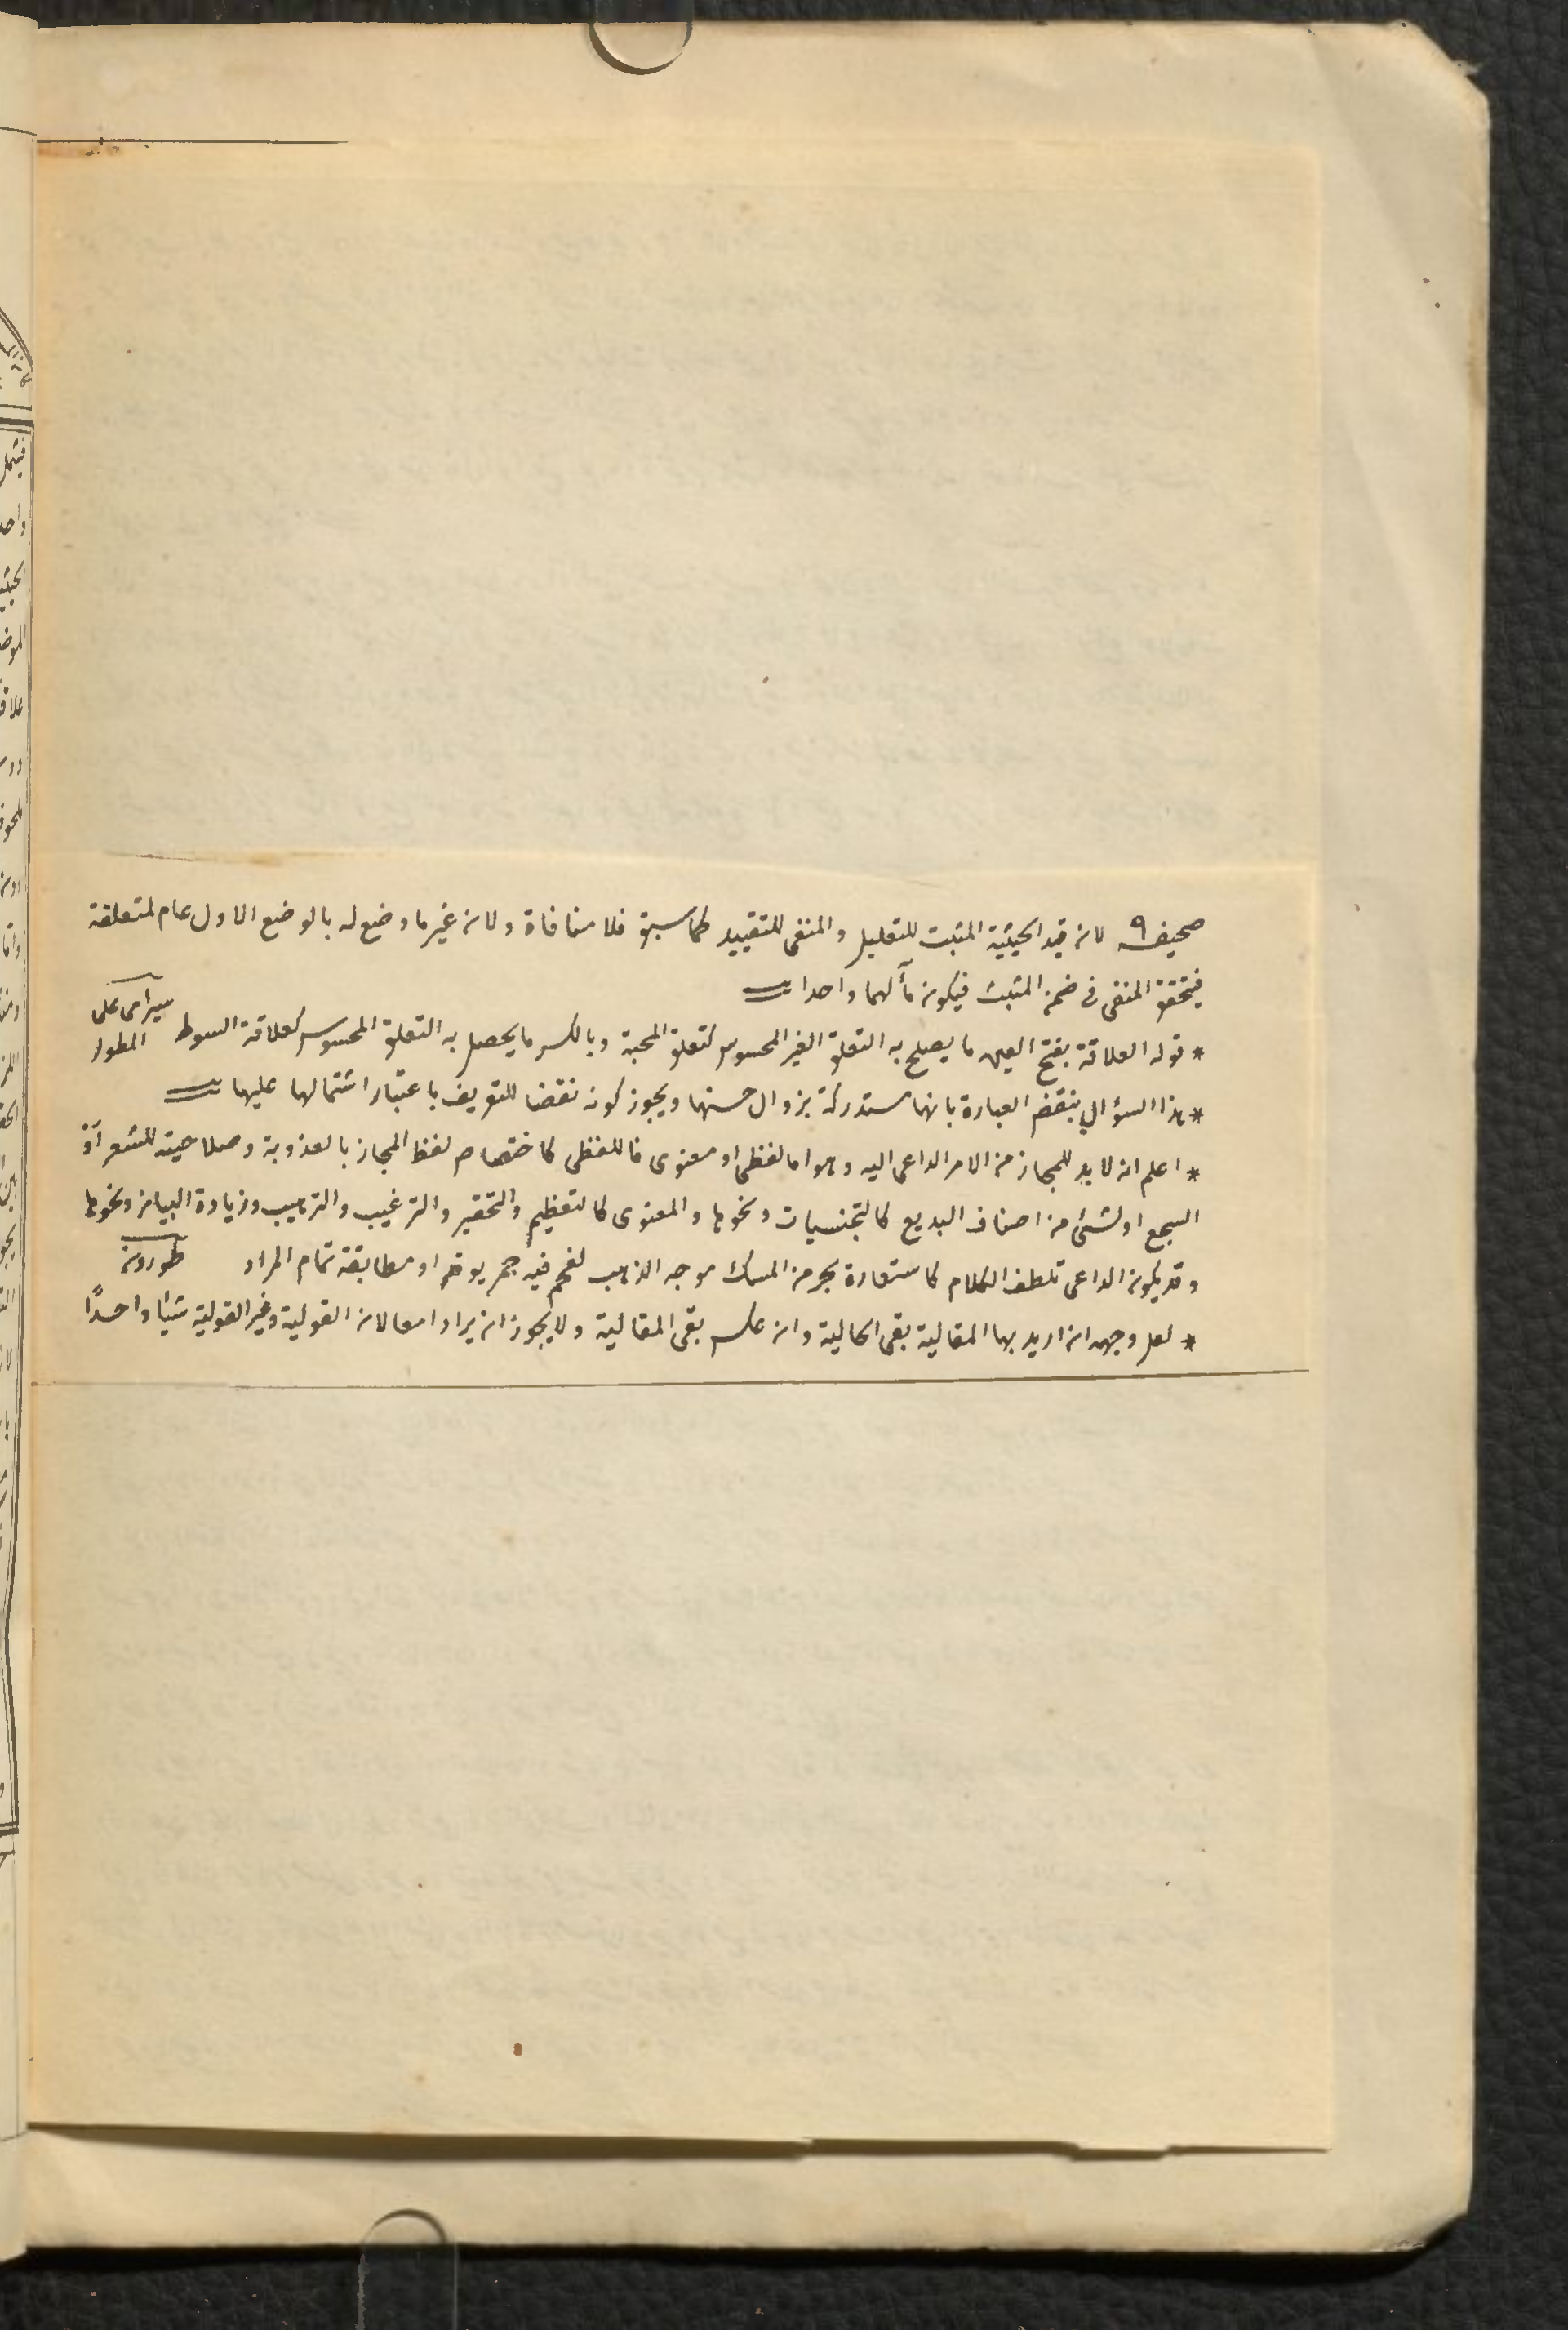 صحيفه ٩ لان قيد الحيثية المثبت للتعليل والمنفى للتقييد كما سبق فلا منافاة ولان غير ما وضع له بالوضع الاول عام لمتعلقه
فيتحقق المنفى فى ضمن المثبت فيكون مآلهما واحدا
* قوله العلاقة بفتح العين ما يصلح به التعلق الغير المحسوس كتعلق المحبة وبالكسر ما يحصل به التعلق المحسوس كعلاقة السوط سيرامى على المطول
* هذا السؤال ينقض العبارة بانها مستدركة بزوال حسنها ويجوز كونه نقضا للتعريف باعتبار اشتمالها عليها
* اعلم انه لابد للمجاز من الامر الداعى اليه وهو اما لفظى او معنوى فاللفظى كاختصاص لفظ المجاز بالعذوبة وصلاحيته للشعر او
السجع او لشئ من اصناف البديع كالتجنسيات ونحوها والمعنوى كالتعظيم والتحقير والترغيب والترهيب وزيادة البيان ونحوها
وقد يكون الداعى تلطف الكلام كاستعارة بحر من المسك موجه الذهب لفحم فيه جمر يوقد او مطابقة تمام المراد طورون
* لعل وجهه ان اريد بها المقالية بقى الحالية وان عكس بقى المقالية ولا يجوز ان يرادا معا لان القولية وغير القولية شيئا واحدًا